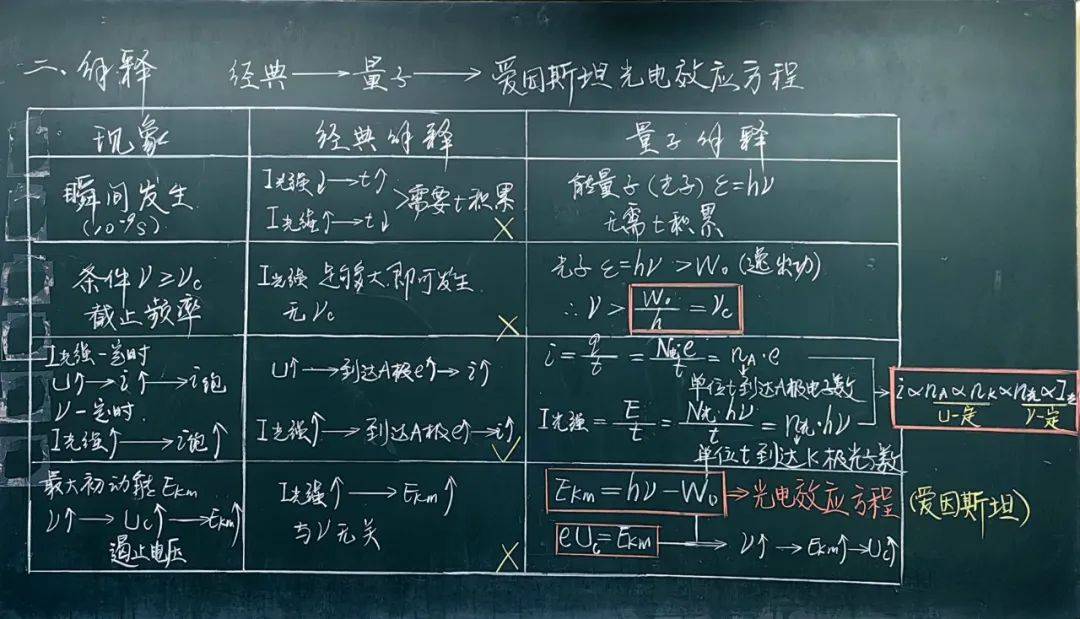 二、解释 经典→量子→爱因斯坦光电效应方程
现象 经典解释 量子解释
瞬间发生
(10⁻⁹s)
I光强↓→t↑
I光强↑→t↓
>需要t积累
×
能量子(光子) ε=hν
无需t积累
条件 ν≥νc
截止频率
I光强 足够大,即可发生
无νc
×
光子 ε=hν>W₀(逸出功)
∴ν> W₀/h =νc
I光强一定时
U↑→i↑→i饱
ν一定时.
I光强↑→i饱↑
U↑→到达A极e↑→i↑
I光强↑→到达A极e↑→i↑
✓
i=q/t=N电e/t=nA·e
单位t到达A极电子数
I光强=E/t=N光·hν/t=n光·hν
单位t到达K极光子数
i∝nA∝nK∝n光∝I光
U一定 ν一定
最大初动能EKm
ν↑→Uc↑→EKm↑
遏止电压
I光强↑→EKm↑
与ν无关
×
EKm=hν-W₀→光电效应方程(爱因斯坦)
eUc=EKm→ν↑→EKm↑→Uc↑